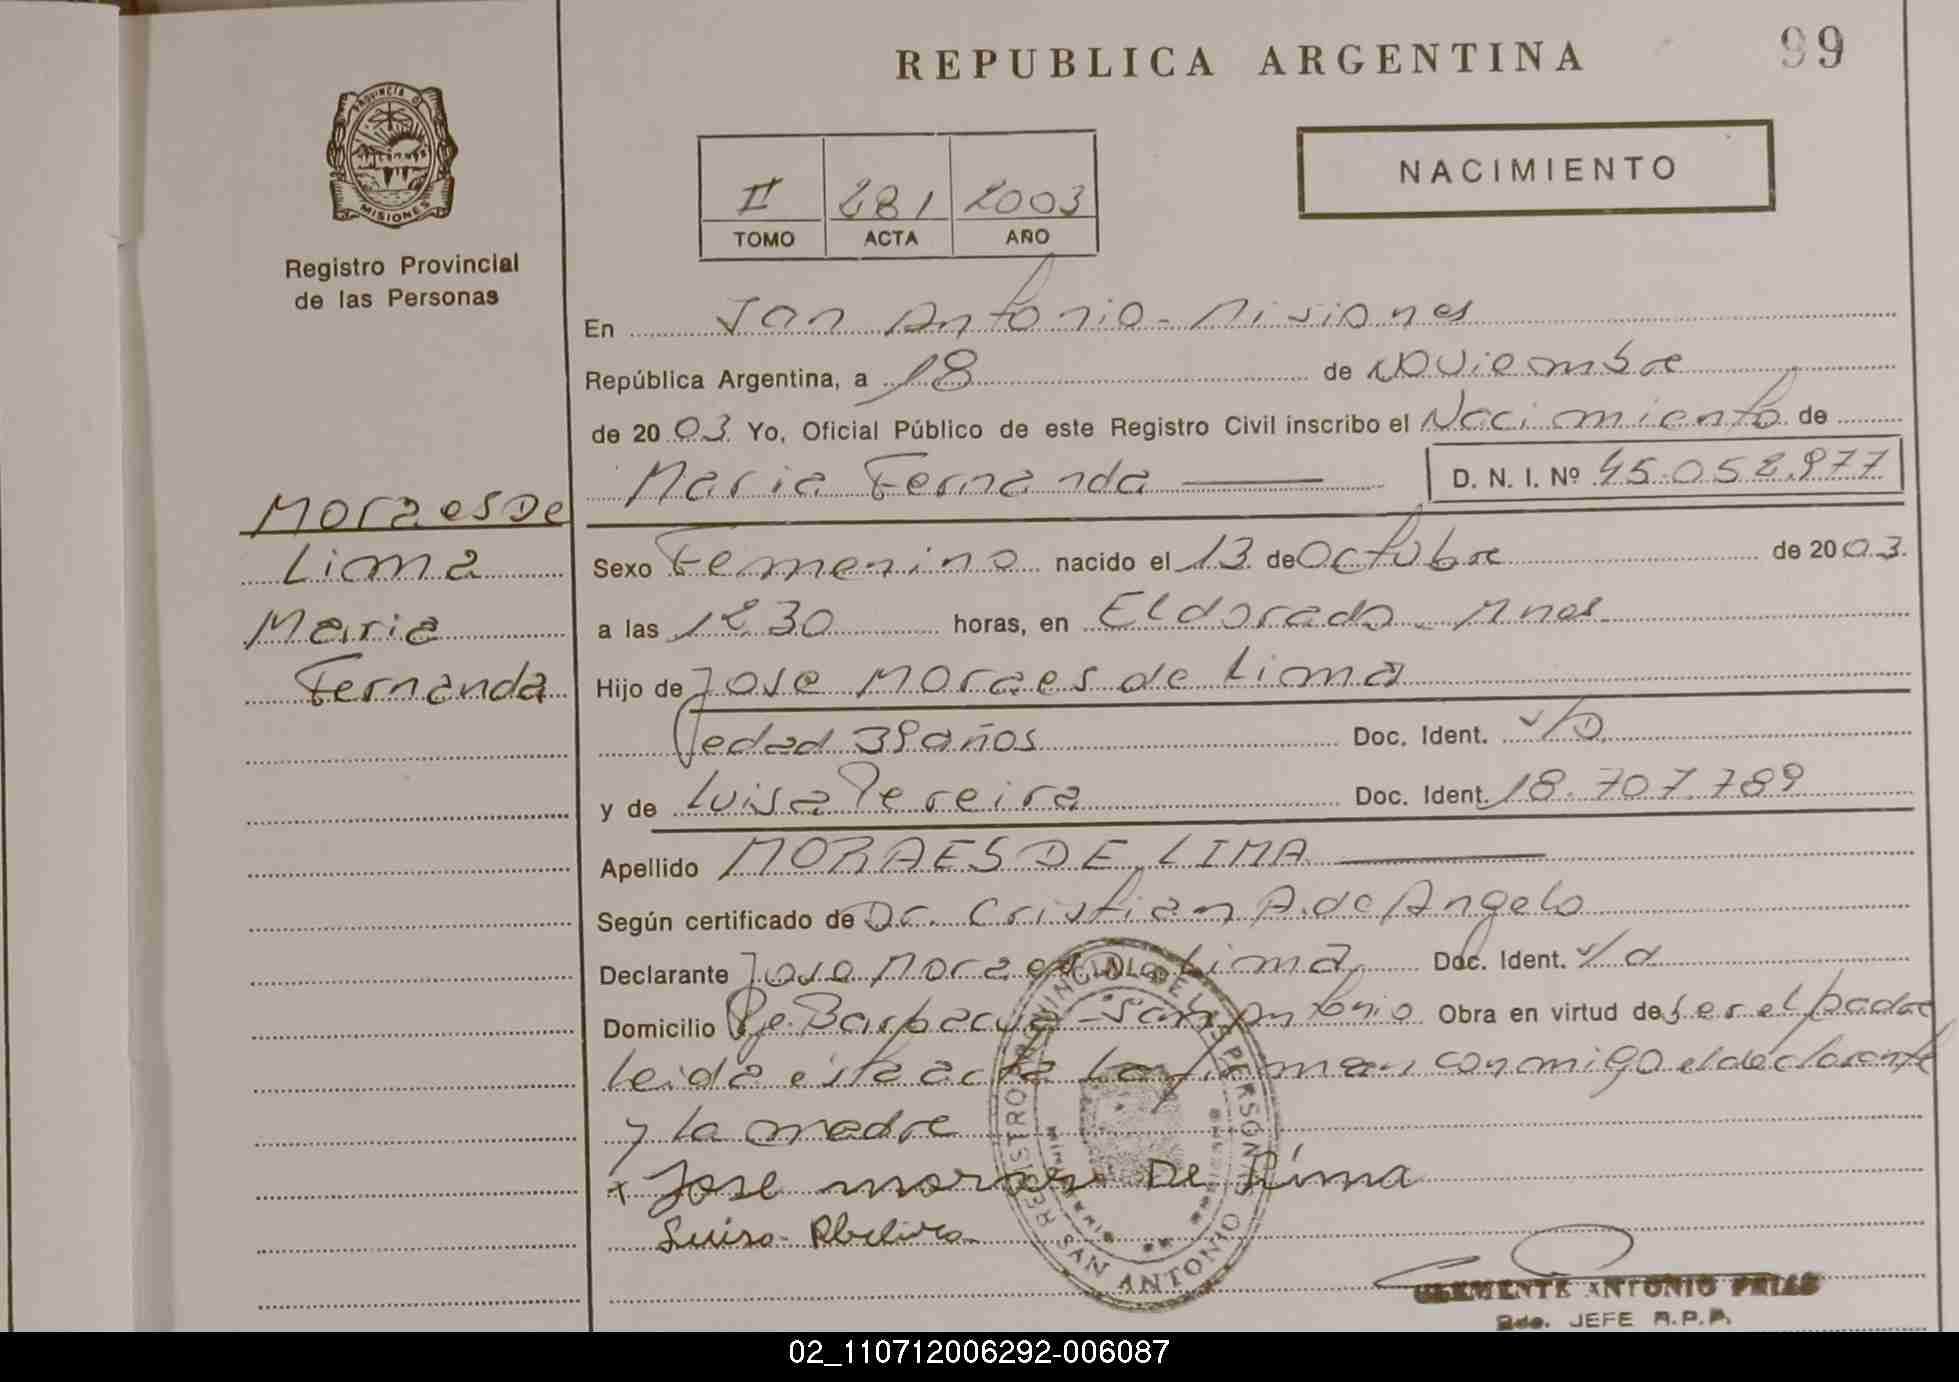 REPUBLICA ARGENTINA
99
PROVINCIA DE
MISIONES
Registro Provincial
de las Personas
II 281 2003
TOMO ACTA AÑO
NACIMIENTO
En San Antonio - Misiones
República Argentina, a 18 de Noviembre
de 2003. Yo, Oficial Público de este Registro Civil inscribo el Nacimiento de
Maria Fernanda D. N. I. Nº 45.052.977
Moraes De
Lima
Maria
Fernanda
Sexo Femenino nacido el 13 de Octubre de 2003.
a las 12 30 horas, en Eldorado - Mnes
Hijo de Jose Moraes de Lima
edad 39 años Doc. Ident. S/D.
y de Luisa Pereira Doc. Ident. 18.707.789
Apellido MORAES DE LIMA
Según certificado de Dr. Cristian A. de Angelo
Declarante Jose Moraes de Lima Doc. Ident. S/d
Domicilio Pje. Barbacua - San Antonio Obra en virtud de ser el padre
leida esta acta la firman conmigo el declarante
y la madre
x Jose moraes De Lima
Luisa
REGISTRO PROVINCIAL DE LAS PERSONAS
SAN ANTONIO
CLEMENTE ANTONIO
JEFE R.P.P.
02_110712006292-006087